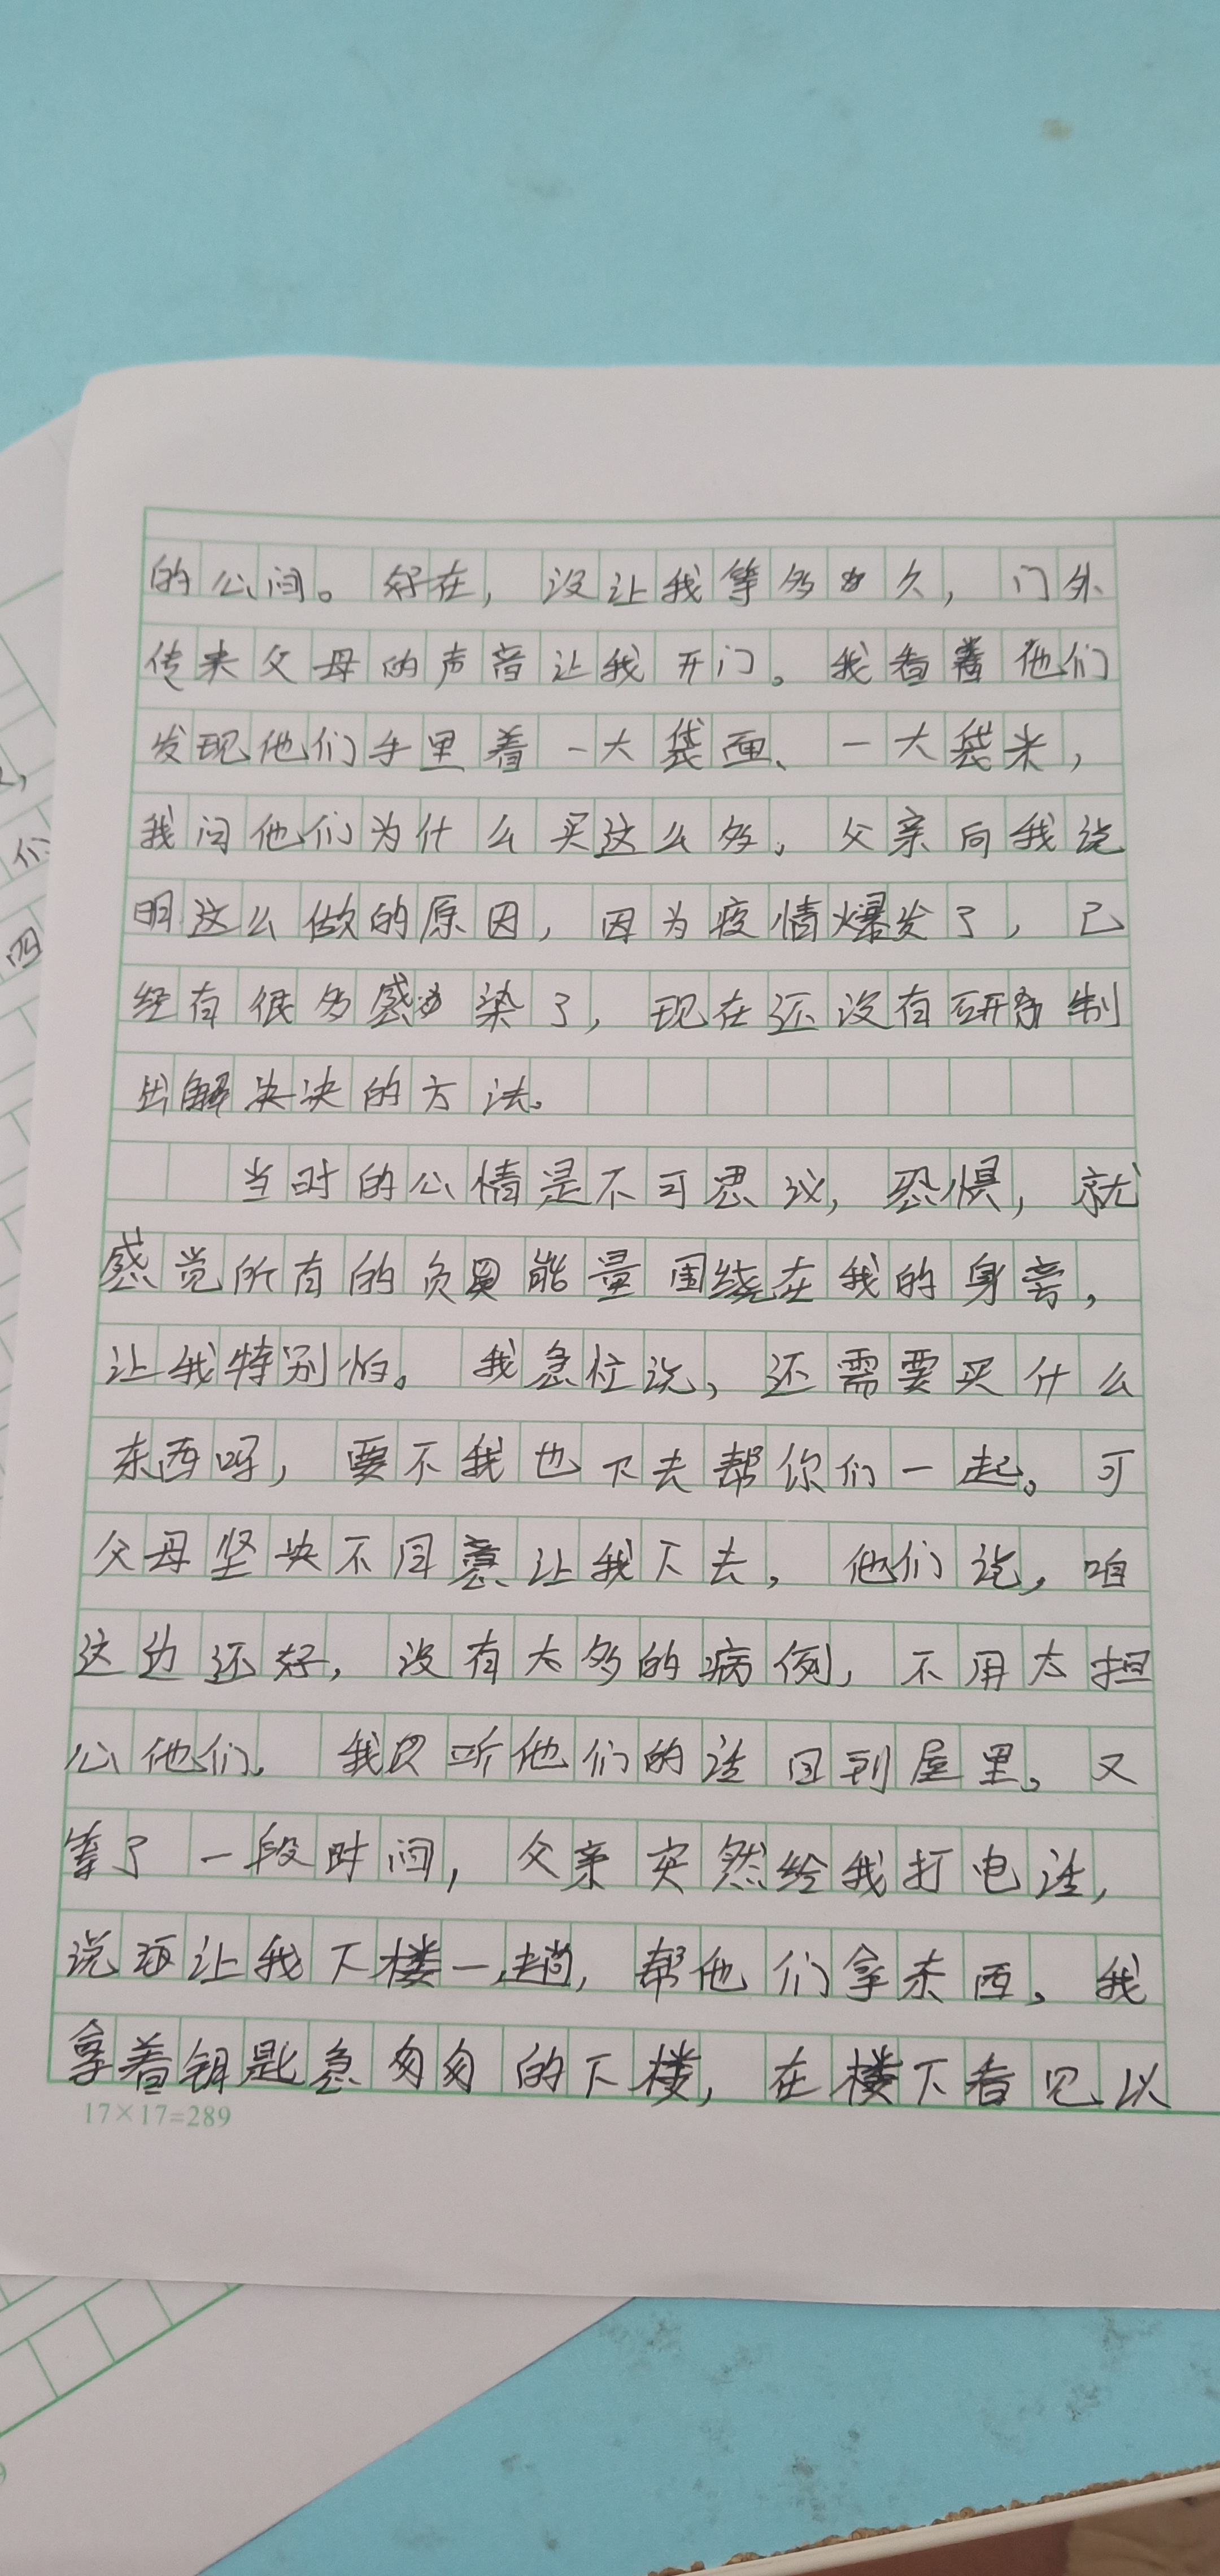 的心间。好在，没让我等多久，门外
传来父母的声音让我开门。我看着他们
发现他们手里着一大袋面、一大袋米，
我问他们为什么买这么多。父亲向我说
明这么做的原因，因为疫情爆发了，已
经有很多感染了，现在还没有研制
出解决的方法。
当时的心情是不可思议，恐惧，就
感觉所有的负能量围绕在我的身旁，
让我特别怕。我急忙说，还需要买什么
东西吗，要不我也下去帮你们一起。可
父母坚决不同意让我下去，他们说，咱
这边还好，没有太多的病例，不用太担
心他们。我只听他们的话回到屋里。又
等了一段时间，父亲突然给我打电话，
说要让我下楼一趟，帮他们拿东西。我
拿着钥匙急匆匆的下楼，在楼下看见以
17×17=289
们
四